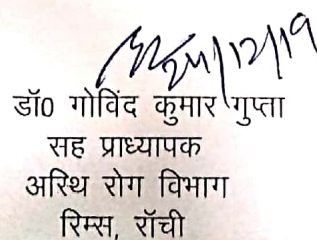 24/12/19
डॉ0 गोविंद कुमार गुप्ता
सह प्राध्यापक
अस्थि रोग विभाग
रिम्स, राँची